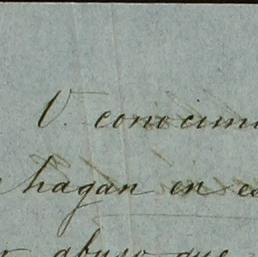 V. conocimi
hagan en es
abuso que